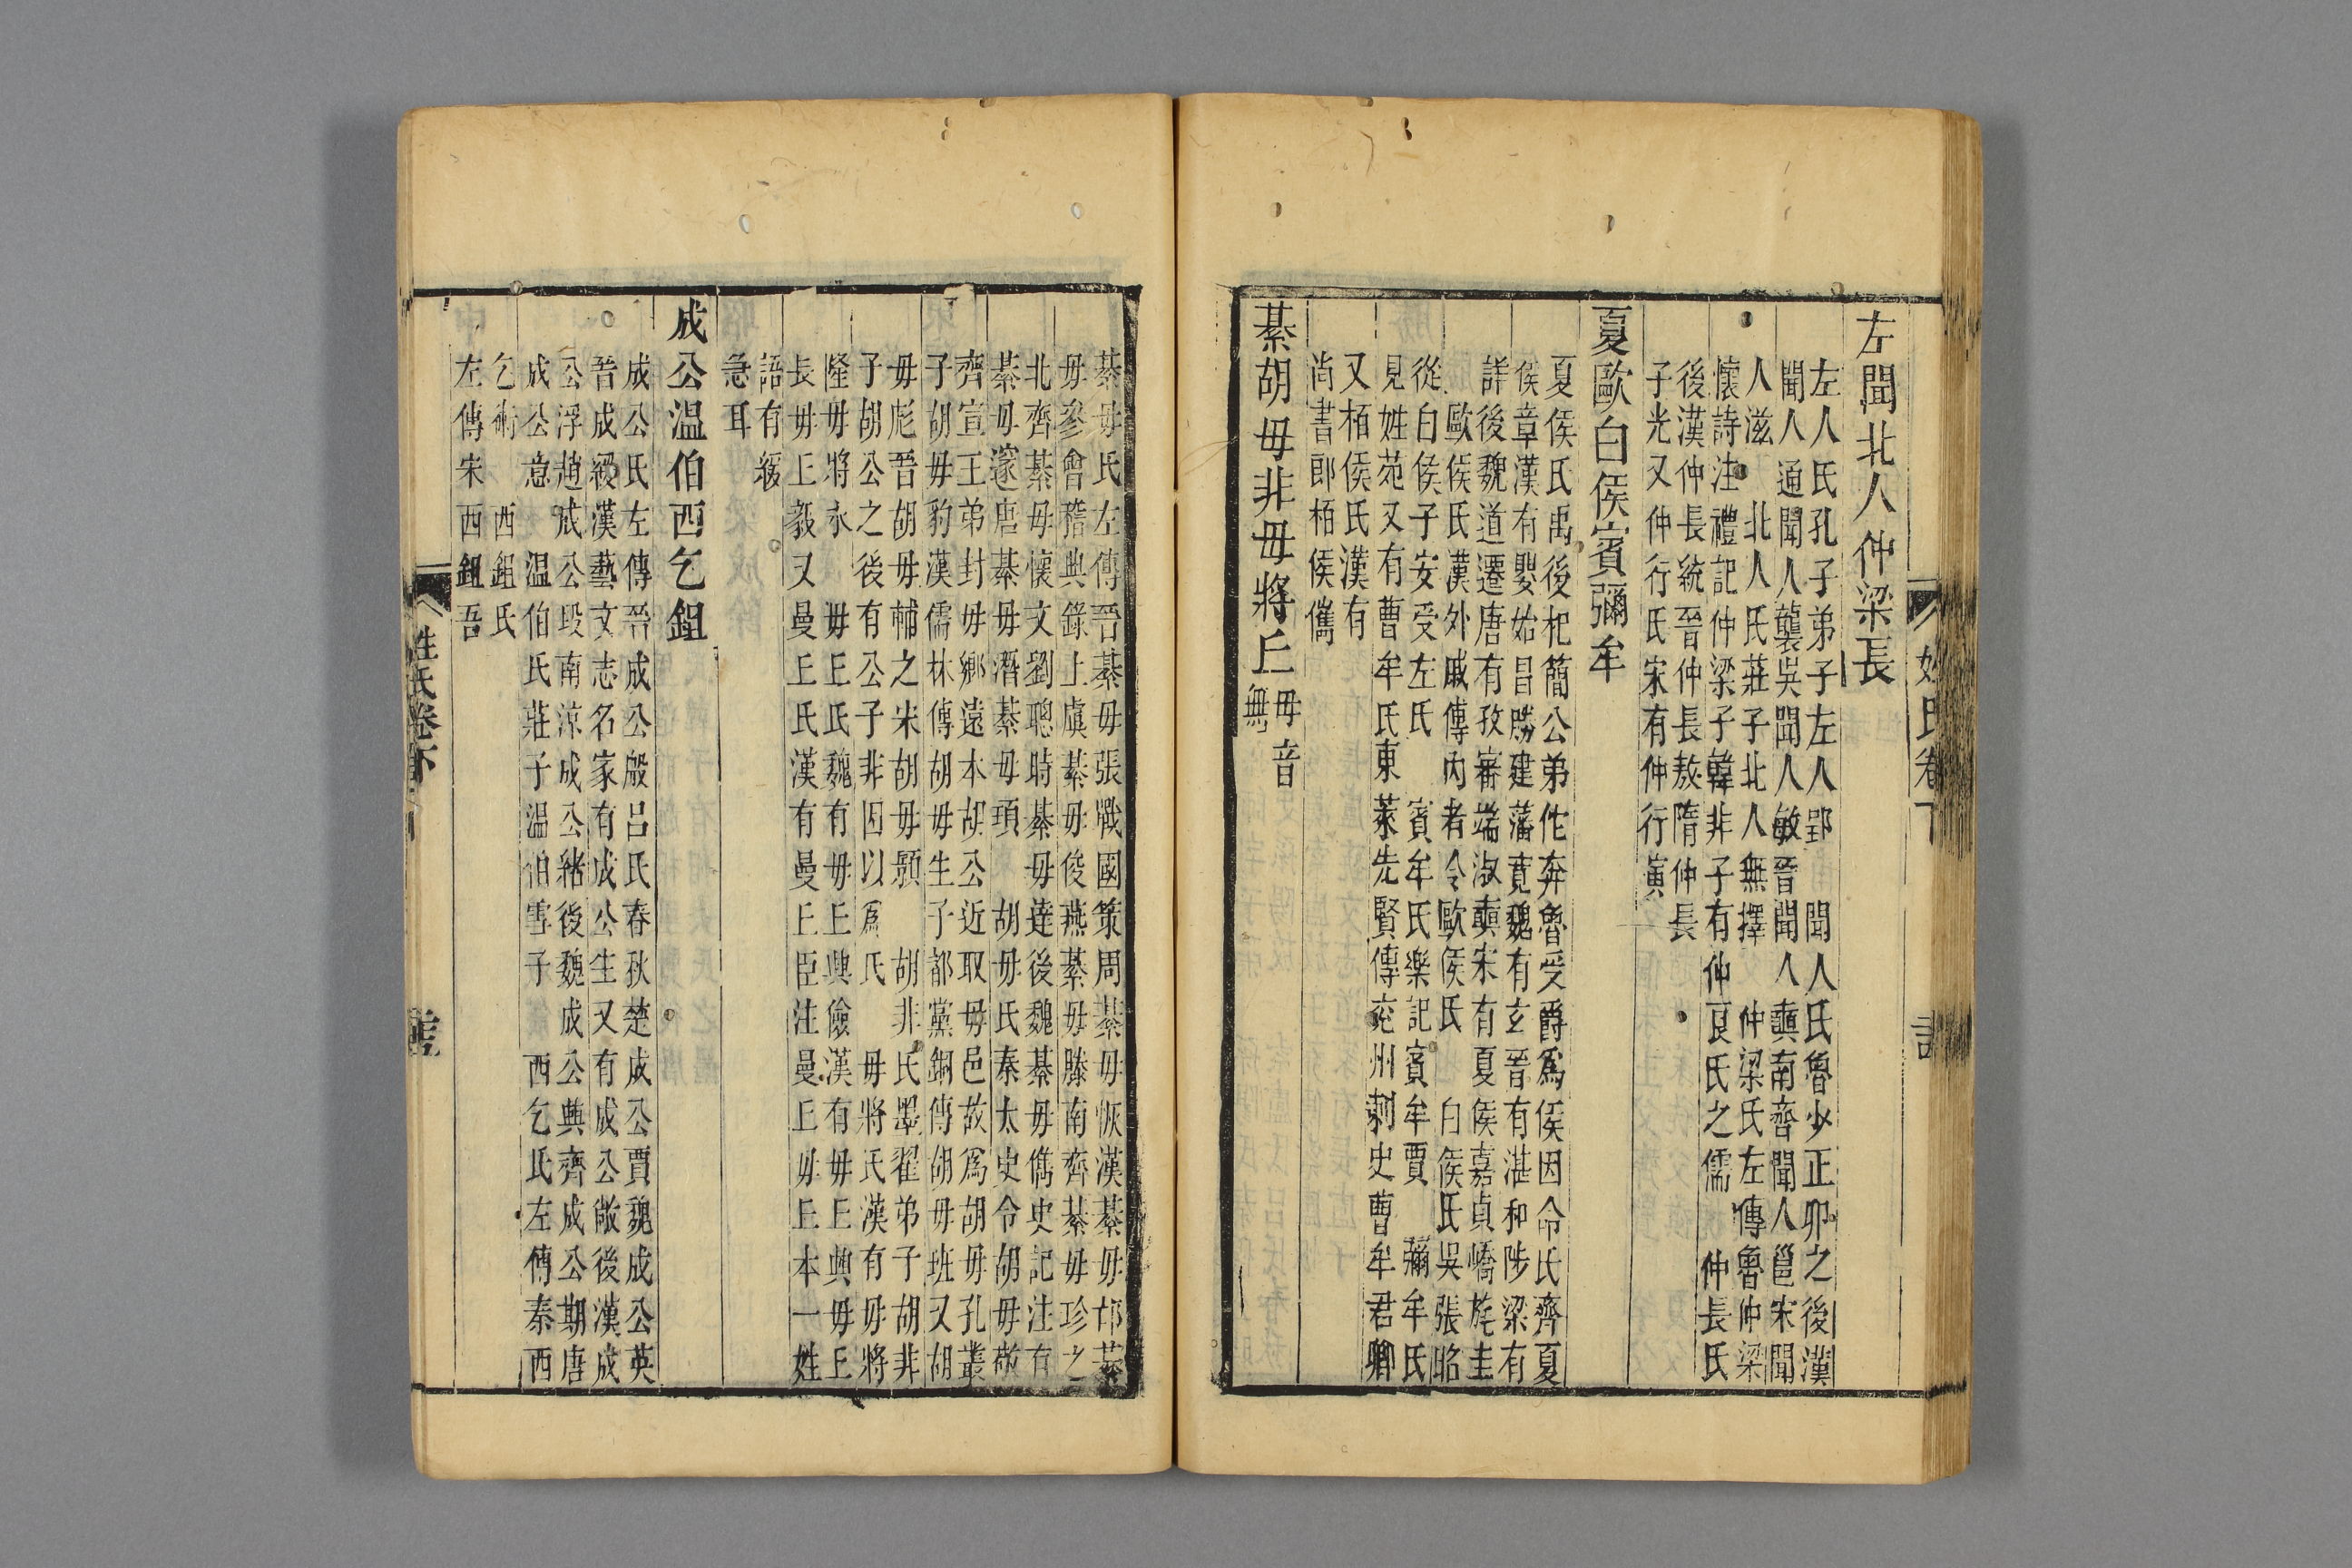 左聞北人仲梁長
左人氏孔子弟子左人郢　聞人氏魯少正卯之後漢
聞人通聞人襲吳聞人敏晉聞人奭南齊聞人邕宋聞
人滋　北人氏莊子北人無擇　仲梁氏左傳魯仲梁
懷詩注禮記仲梁子韓非子有仲良氏之儒　仲長氏
後漢仲長統晉仲長敖隋仲長
子光又仲行氏宋有仲行寅
夏歐白侯賓彌牟
夏侯氏禹後杞簡公弟佗奔魯受爵爲侯因命氏齊夏
侯章漢有嬰始昌勝建藩寬魏有玄晉有湛和陟梁有
詳後魏道遷唐有孜審端淑奭宋有夏侯嘉貞嶠旄圭
歐侯氏漢外戚傳内者令歐侯氏　白侯氏吳張昭
從白侯子安受左氏　賓牟氏樂記賓牟賈　彌牟氏
見姓苑又有曹牟氏東萊先賢傳兖州刺史曹牟君卿
又栢侯氏漢有
尚書郎栢侯儁
綦胡毋非毋將丘毋音無
姓氏卷下
綦毋氏左傳晉綦毋張戰國策周綦毋恢漢綦毋邡綦
毋參會稽典錄上虞綦毋俊燕綦毋滕南齊綦毋珍之
北齊綦毋懷文劉聰時綦毋達後魏綦毋儁史記注有
綦毋邃唐綦毋潛綦毋頊　胡毋氏秦太史令胡毋敬
齊宣王弟封毋鄉遠本胡公近取毋邑故爲胡毋孔叢
子胡毋豹漢儒林傳胡毋生子都黨錮傳胡毋班又胡
毋彪晉胡毋輔之宋胡毋顥　胡非氏墨翟弟子胡非
子胡公之後有公子非因以爲氏　毋將氏漢有毋將
隆毋將永　毋丘氏魏有毋丘興儉漢有毋丘興毋丘
長毋丘毅又曼丘氏漢有曼丘臣注曼丘毋丘本一姓
語有緩
急耳
成公温伯西乞鉏
成公氏左傳晉成公般呂氏春秋楚成公賈魏成公英
晉成公綏漢藝文志名家有成公生又有成公敞後漢成
公浮趙成公段南涼成公緒後魏成公興齊成公期唐
成公意　温伯氏莊子温伯雪子　西乞氏左傳秦西
乞術　西鉏氏
左傳宋西鉏吾
姓氏卷下